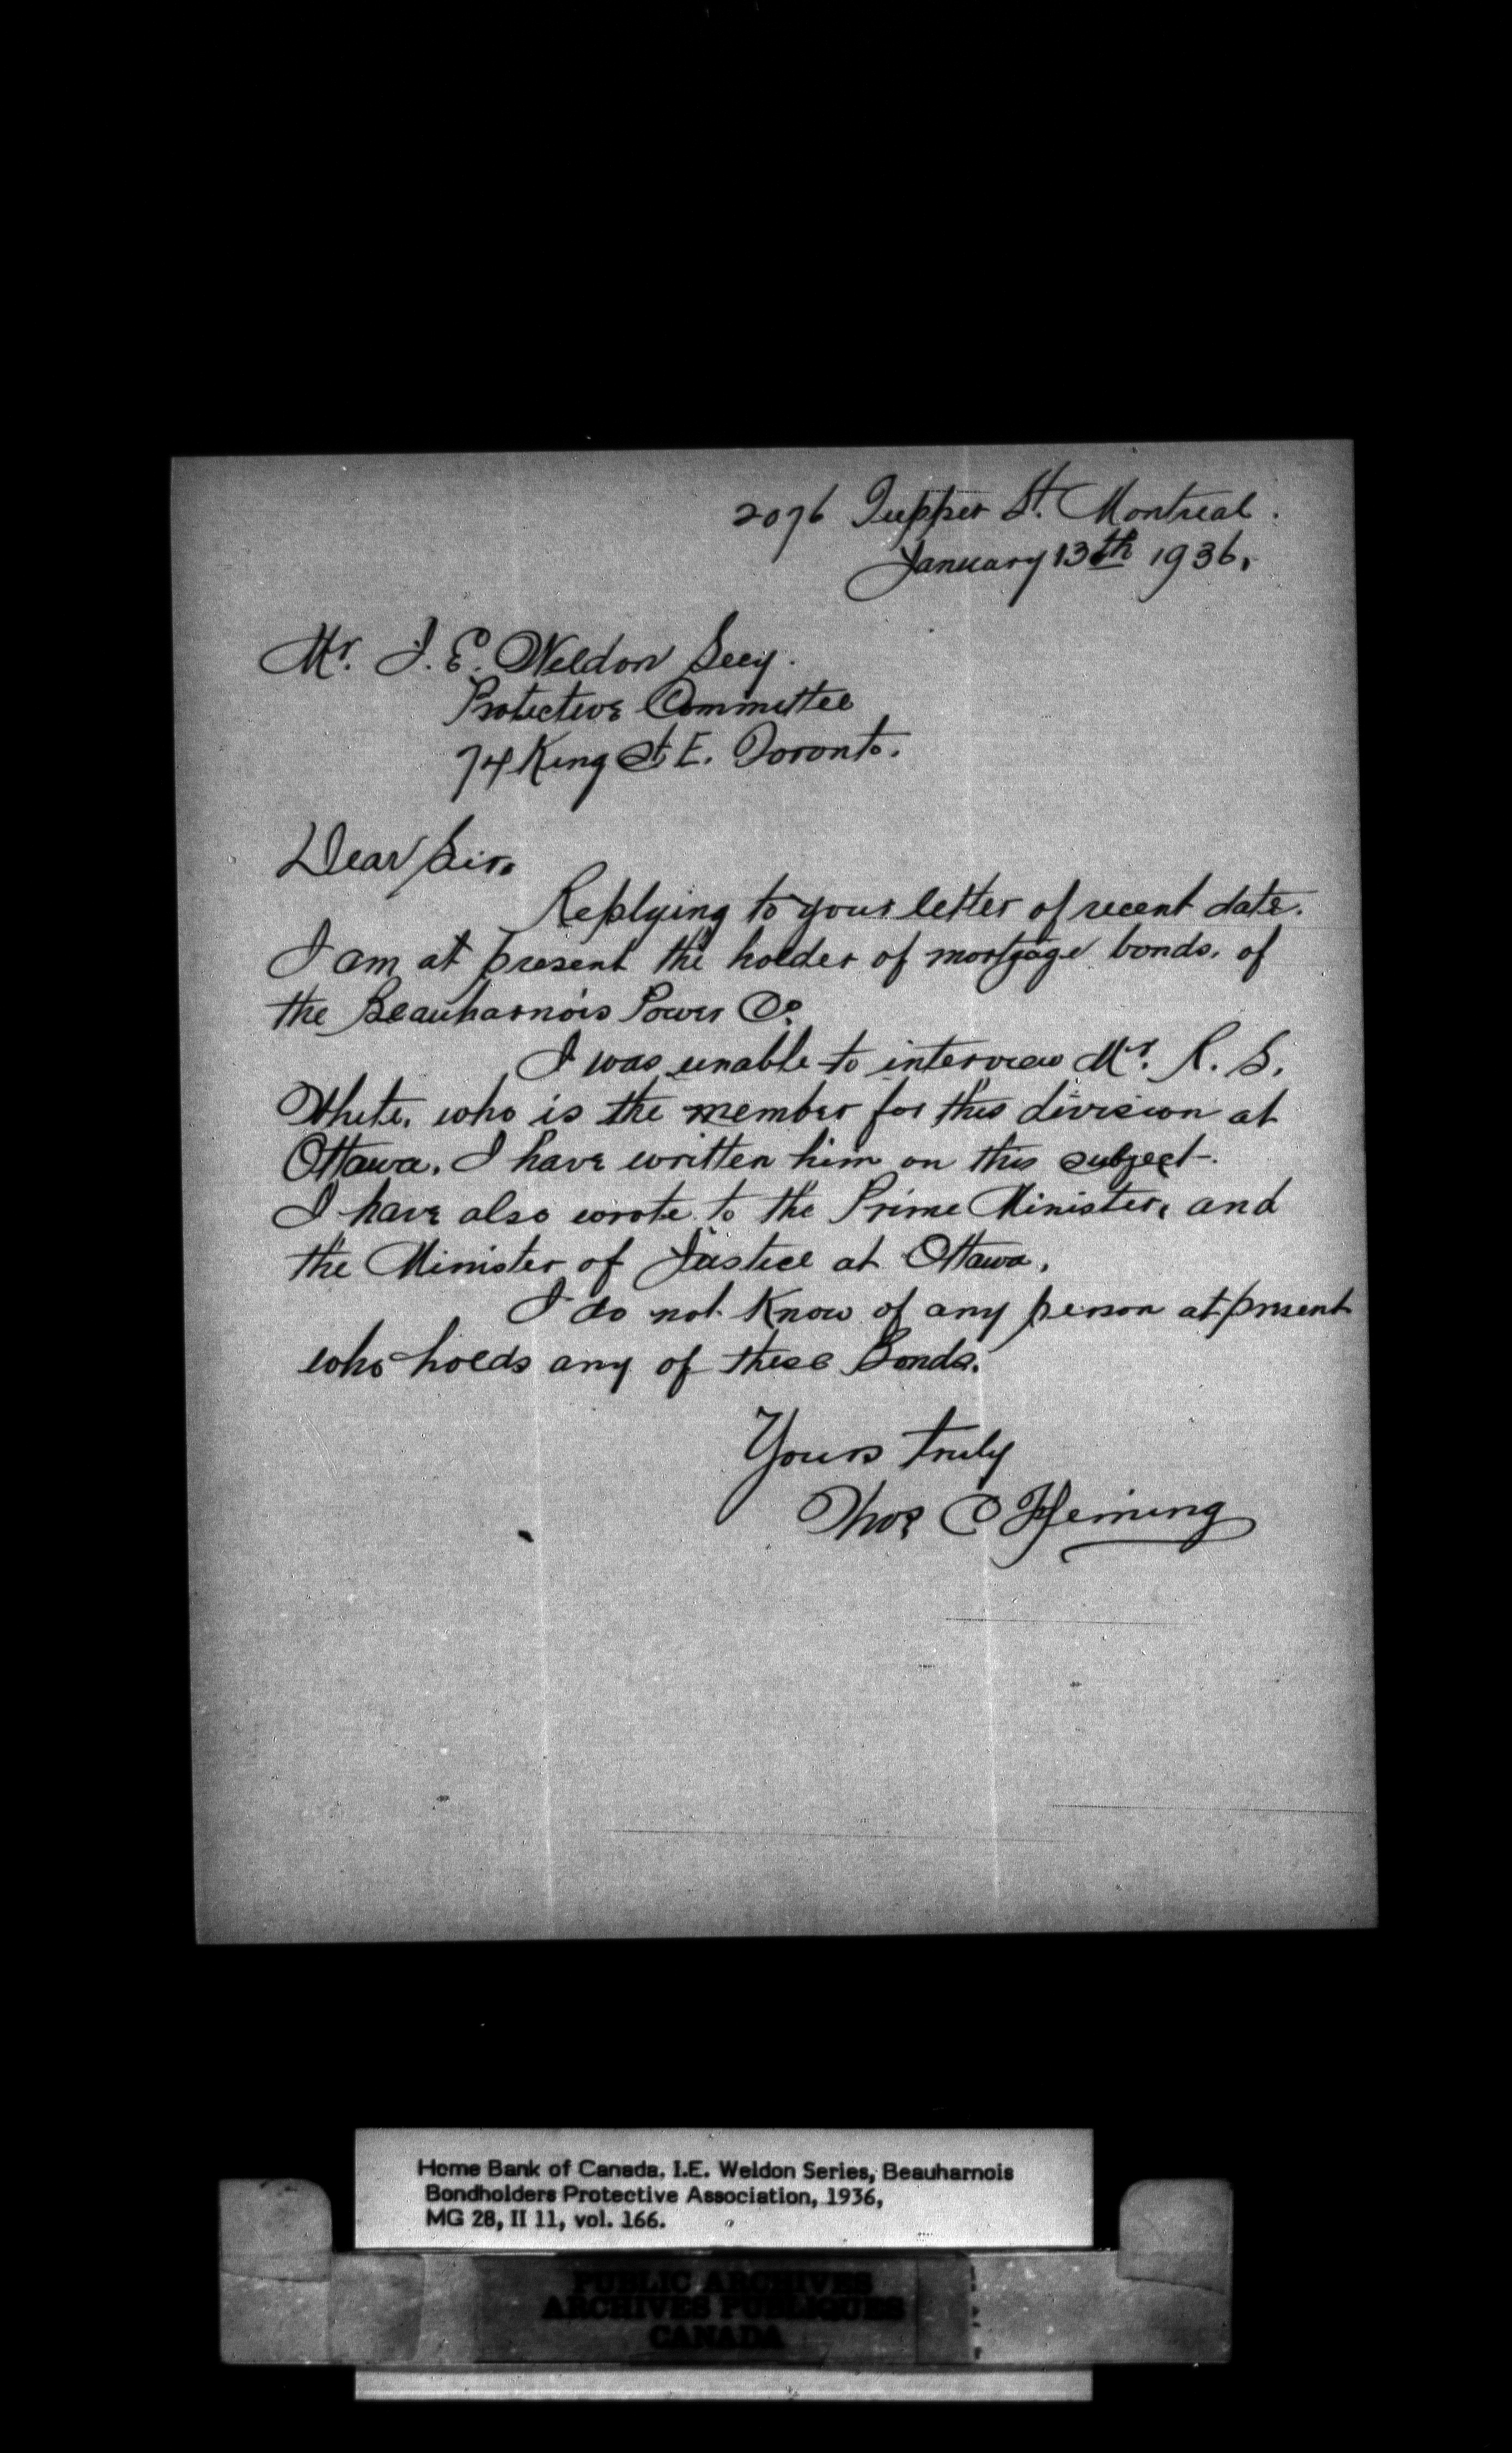 2076 Tupper St. Montreal.
January 13th 1936.
Mr. I. E. Weldon Secy.
Protective Committee
74 King St E. Toronto.
Dear Sir.
Replying to your letter of recent date.
I am at present the holder of mortgage bonds. of
the Beauharnois Power Co.
I was unable to interview Mr. R. S.
White. who is the member for this division at
Ottawa. I have written him on this subject.
I have also wrote to the Prime Minister, and
the Minister of Justice at Ottawa.
I do not know of any person at present
who holds any of these Bonds.
Yours truly
Thos C Fleming
Home Bank of Canada. I.E. Weldon Series, Beauharnois
Bondholders Protective Association, 1936,
MG 28, II 11, vol. 166.
PUBLIC ARCHIVES
ARCHIVES PUBLIQUES
CANADA